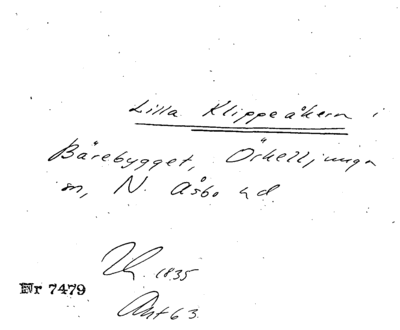 Lilla Klippeåkern i
Bårebygget, Örkelljunga
sn, N. Åsbo hd.
1835
Nr 7479
Ant 63.